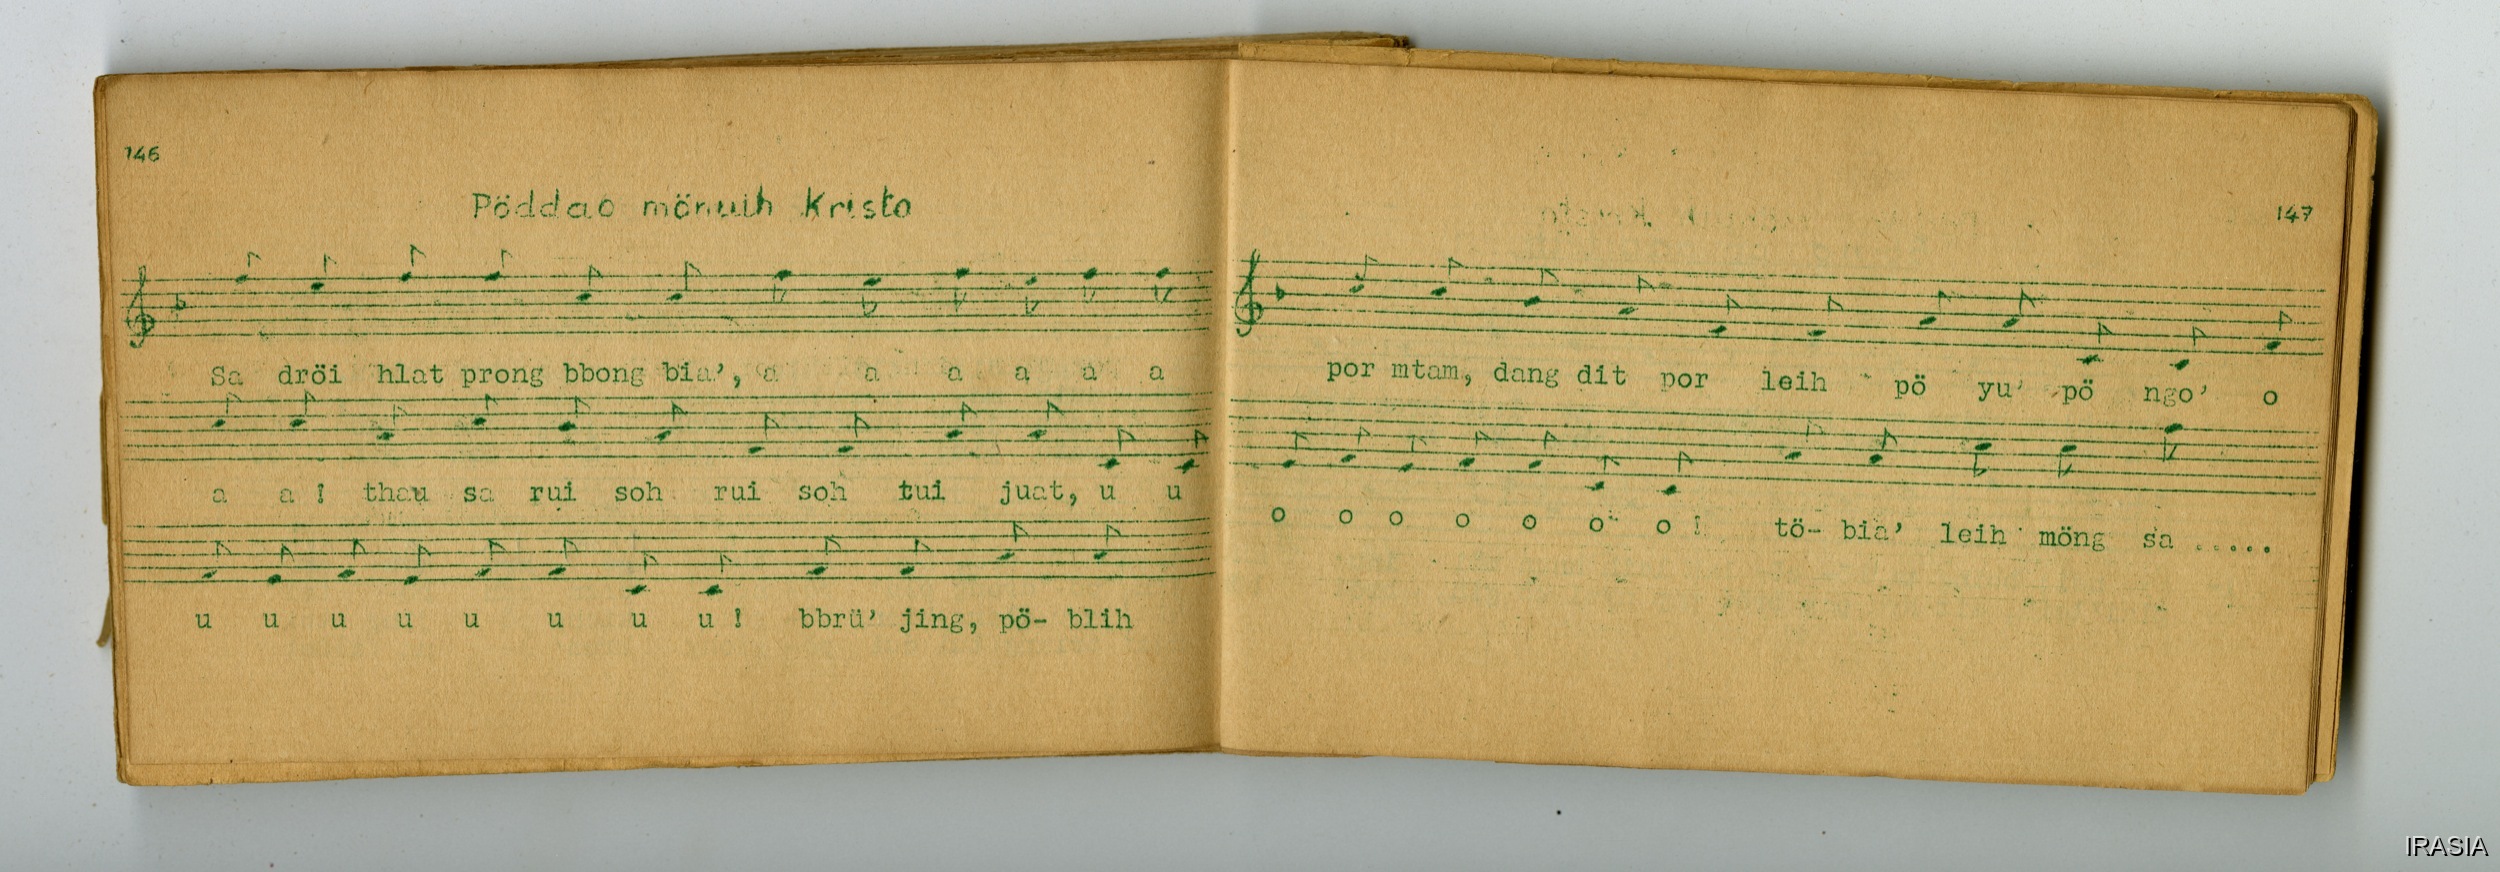 146
Pöddao mönuih Kristo
Sa dröi hlat prong bbong bia', a a a a a a
a a ! thau sa rui soh rui soh tui juat, u u
u u u u u u u u ! bbrü' jing, pö- blih
147
por mtam, dang dit por leih pö yu' pö ngo' o
o o o o o o o ! tö- bia' leih möng sa .....
IRASIA